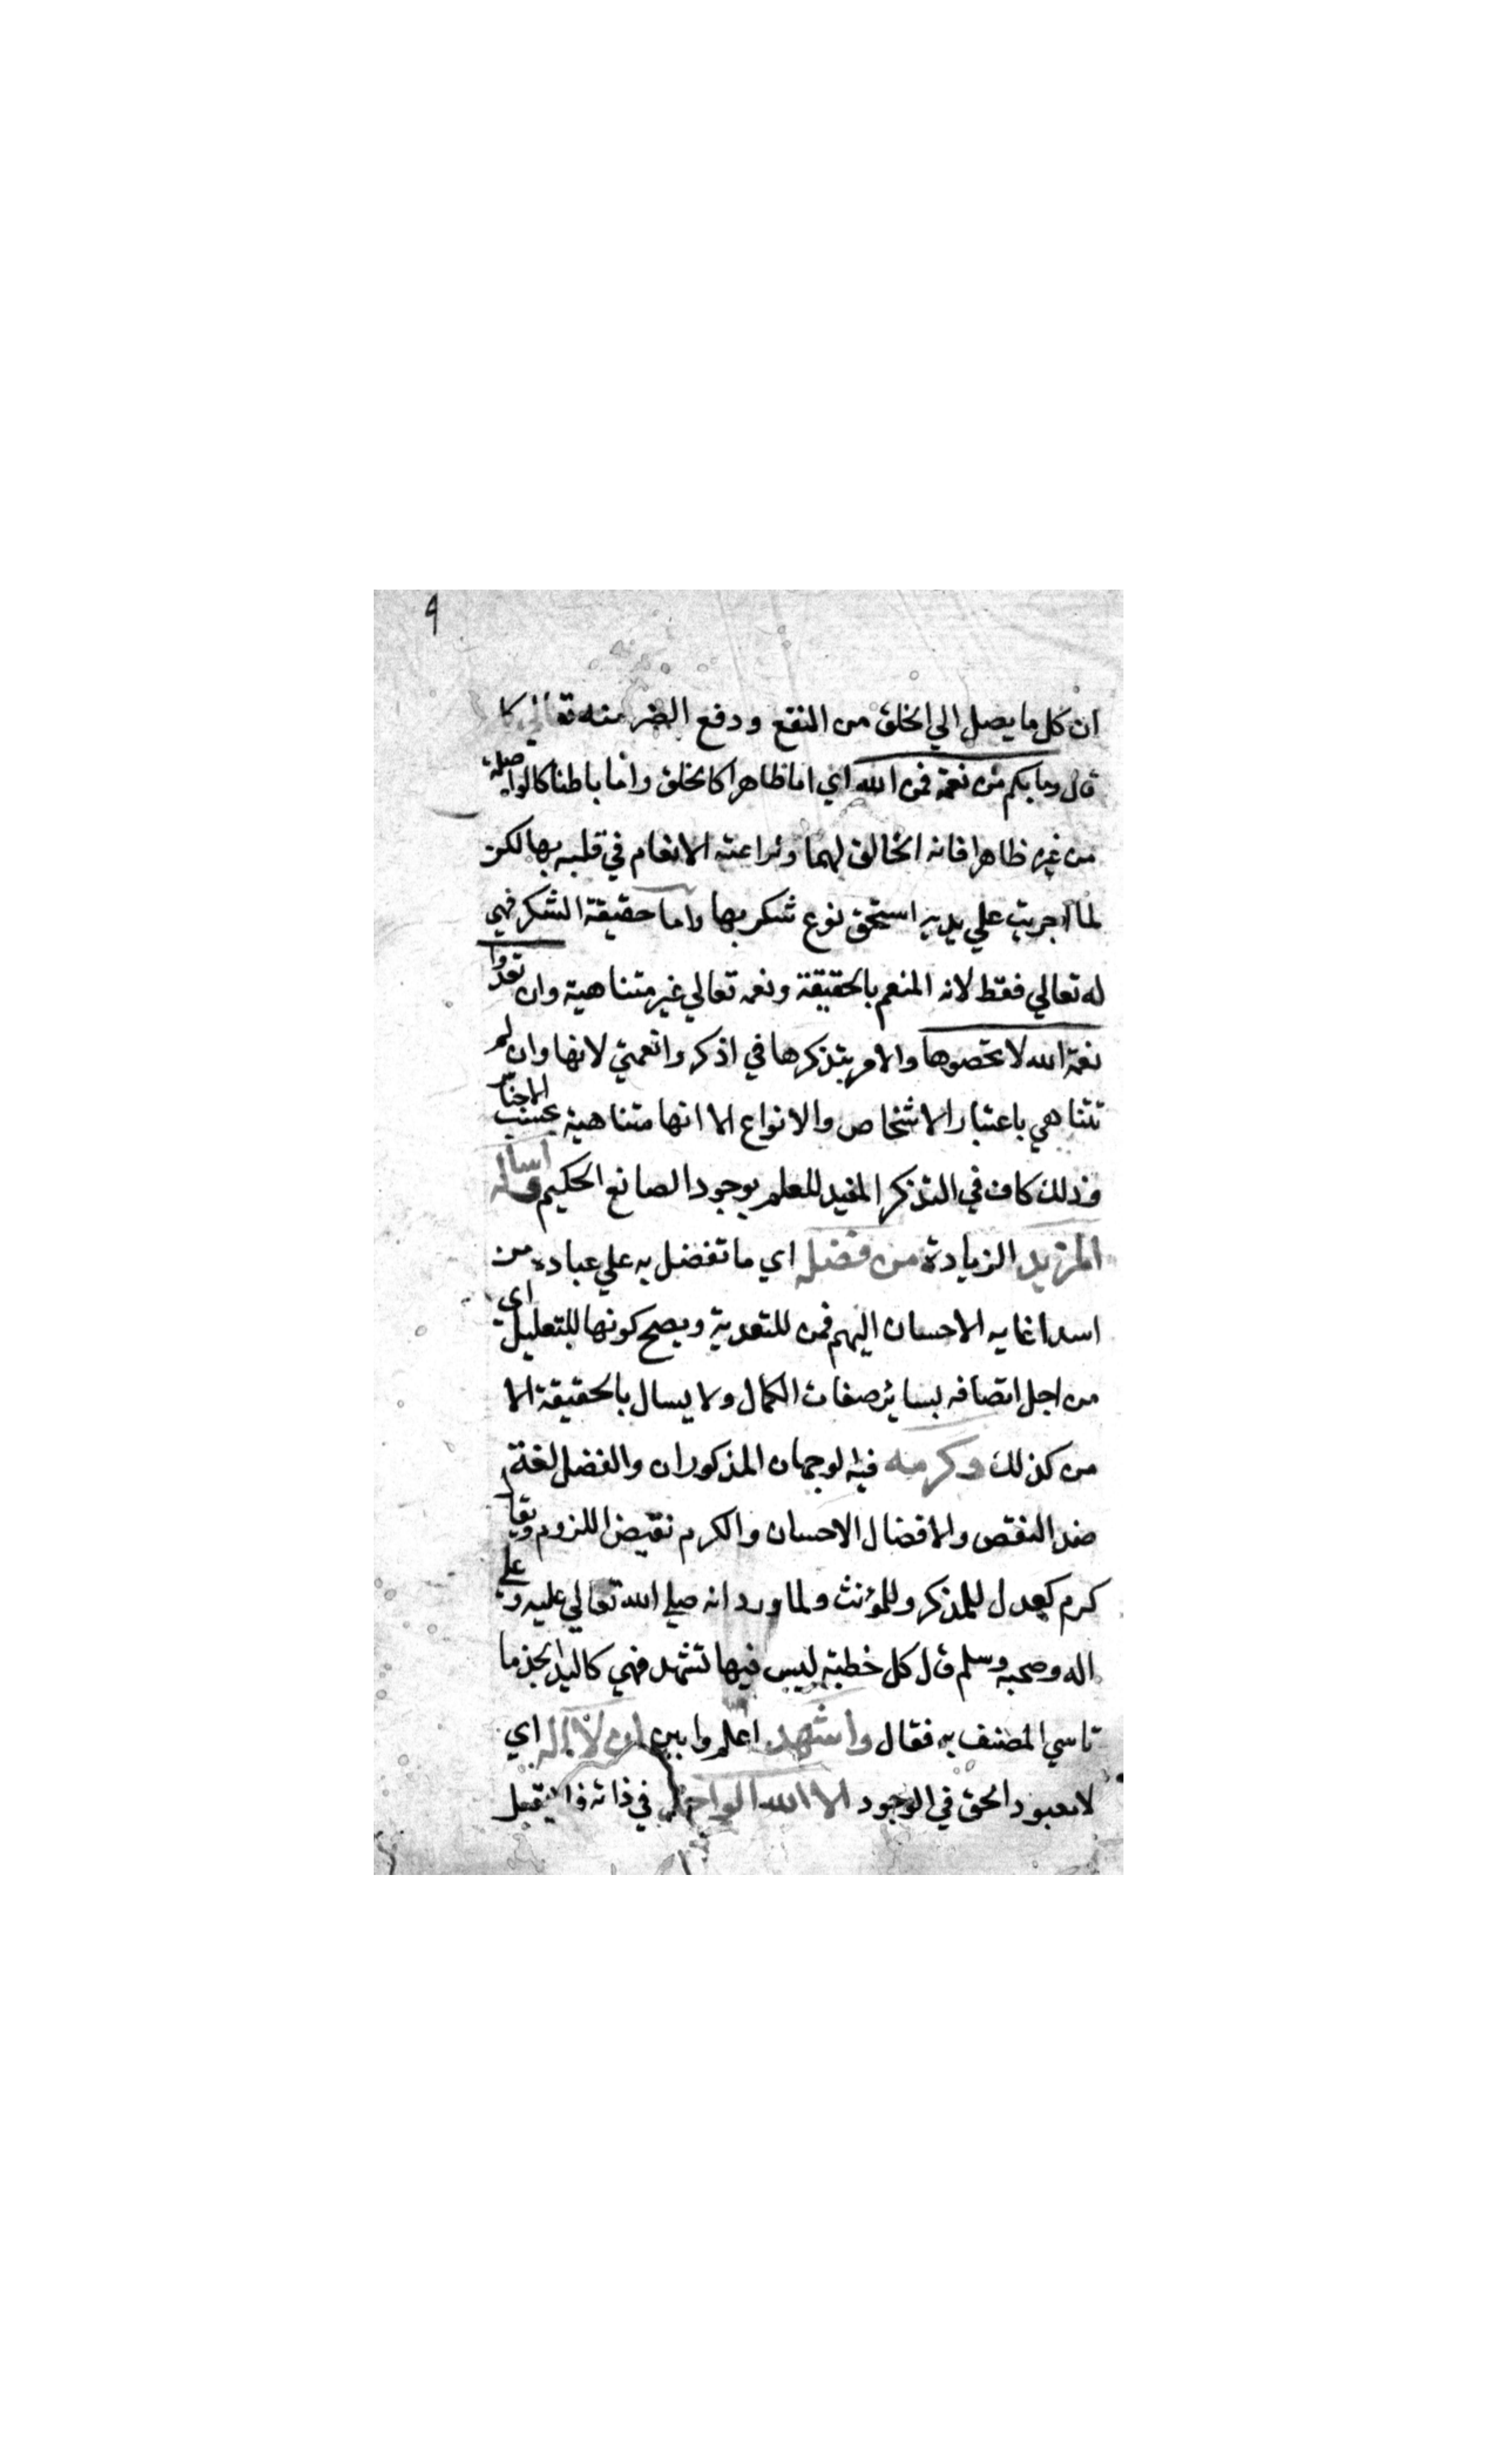 ٩
ان كل ما يصل الي الخلق من النفع ودفع الضر منه تعالي كما
قال وما بكم من نعمة فمن الله اي اما ظاهرا كالخلق واما باطنا كالواصلة
من غيره ظاهرا فانه الخالق لهما ولداعية الانعام في قلبه بها لكن
لما اجريت علي يديه استحق نوع شكر بها واما حقيقة الشكر فهي
له تعالي فقط لانه المنعم بالحقيقة ونعمه تعالي غير متناهية وان تعدوا
نعمة الله لا تحصوها والامر بتذكرها في اذكروا نعمتي لانها وان لم
تتناهي باعتبار الاشخاص والانواع الا انها متناهية بحسب الاجناس
وذلك كاف في التذكر المفيد للعلم بوجود الصانع الحكيم واساله
المزيد الزيادة من فضله اي ما تفضل به علي عباده من
اسدا غايه الاحسان اليهم فمن للتعدية ويصح كونها للتعليل اي
من اجل اتصافه بسائر صفات الكمال ولا يسال بالحقيقة الا
من كذلك وكرمه فيه الوجهان المذكوران والفضل لغة
ضد النقص والافضال الاحسان والكرم نقيض اللزوم ويقا
كرم كعدل للمذكر وللمؤنث ولما ورد انه صلي الله تعالي عليه وعلي
اله وصحبه وسلم قال كل خطبة ليس فيها تشهد فهي كاليد الجذما
تاسي المصنف به فقال واشهد اعلم وابين ان لا اله اي
لا معبود الحق في الوجود الا الله الواحد في ذاته فلا يقبل